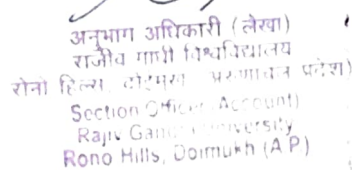 अनुभाग अधिकारी (लेखा)
राजीव गांधी विश्वविद्यालय
रोनो हिल्स, दोइमुख अरुणाचल प्रदेश)
Section Officer (Account)
Rajiv Gandhi University
Rono Hills, Doimukh (A.P)